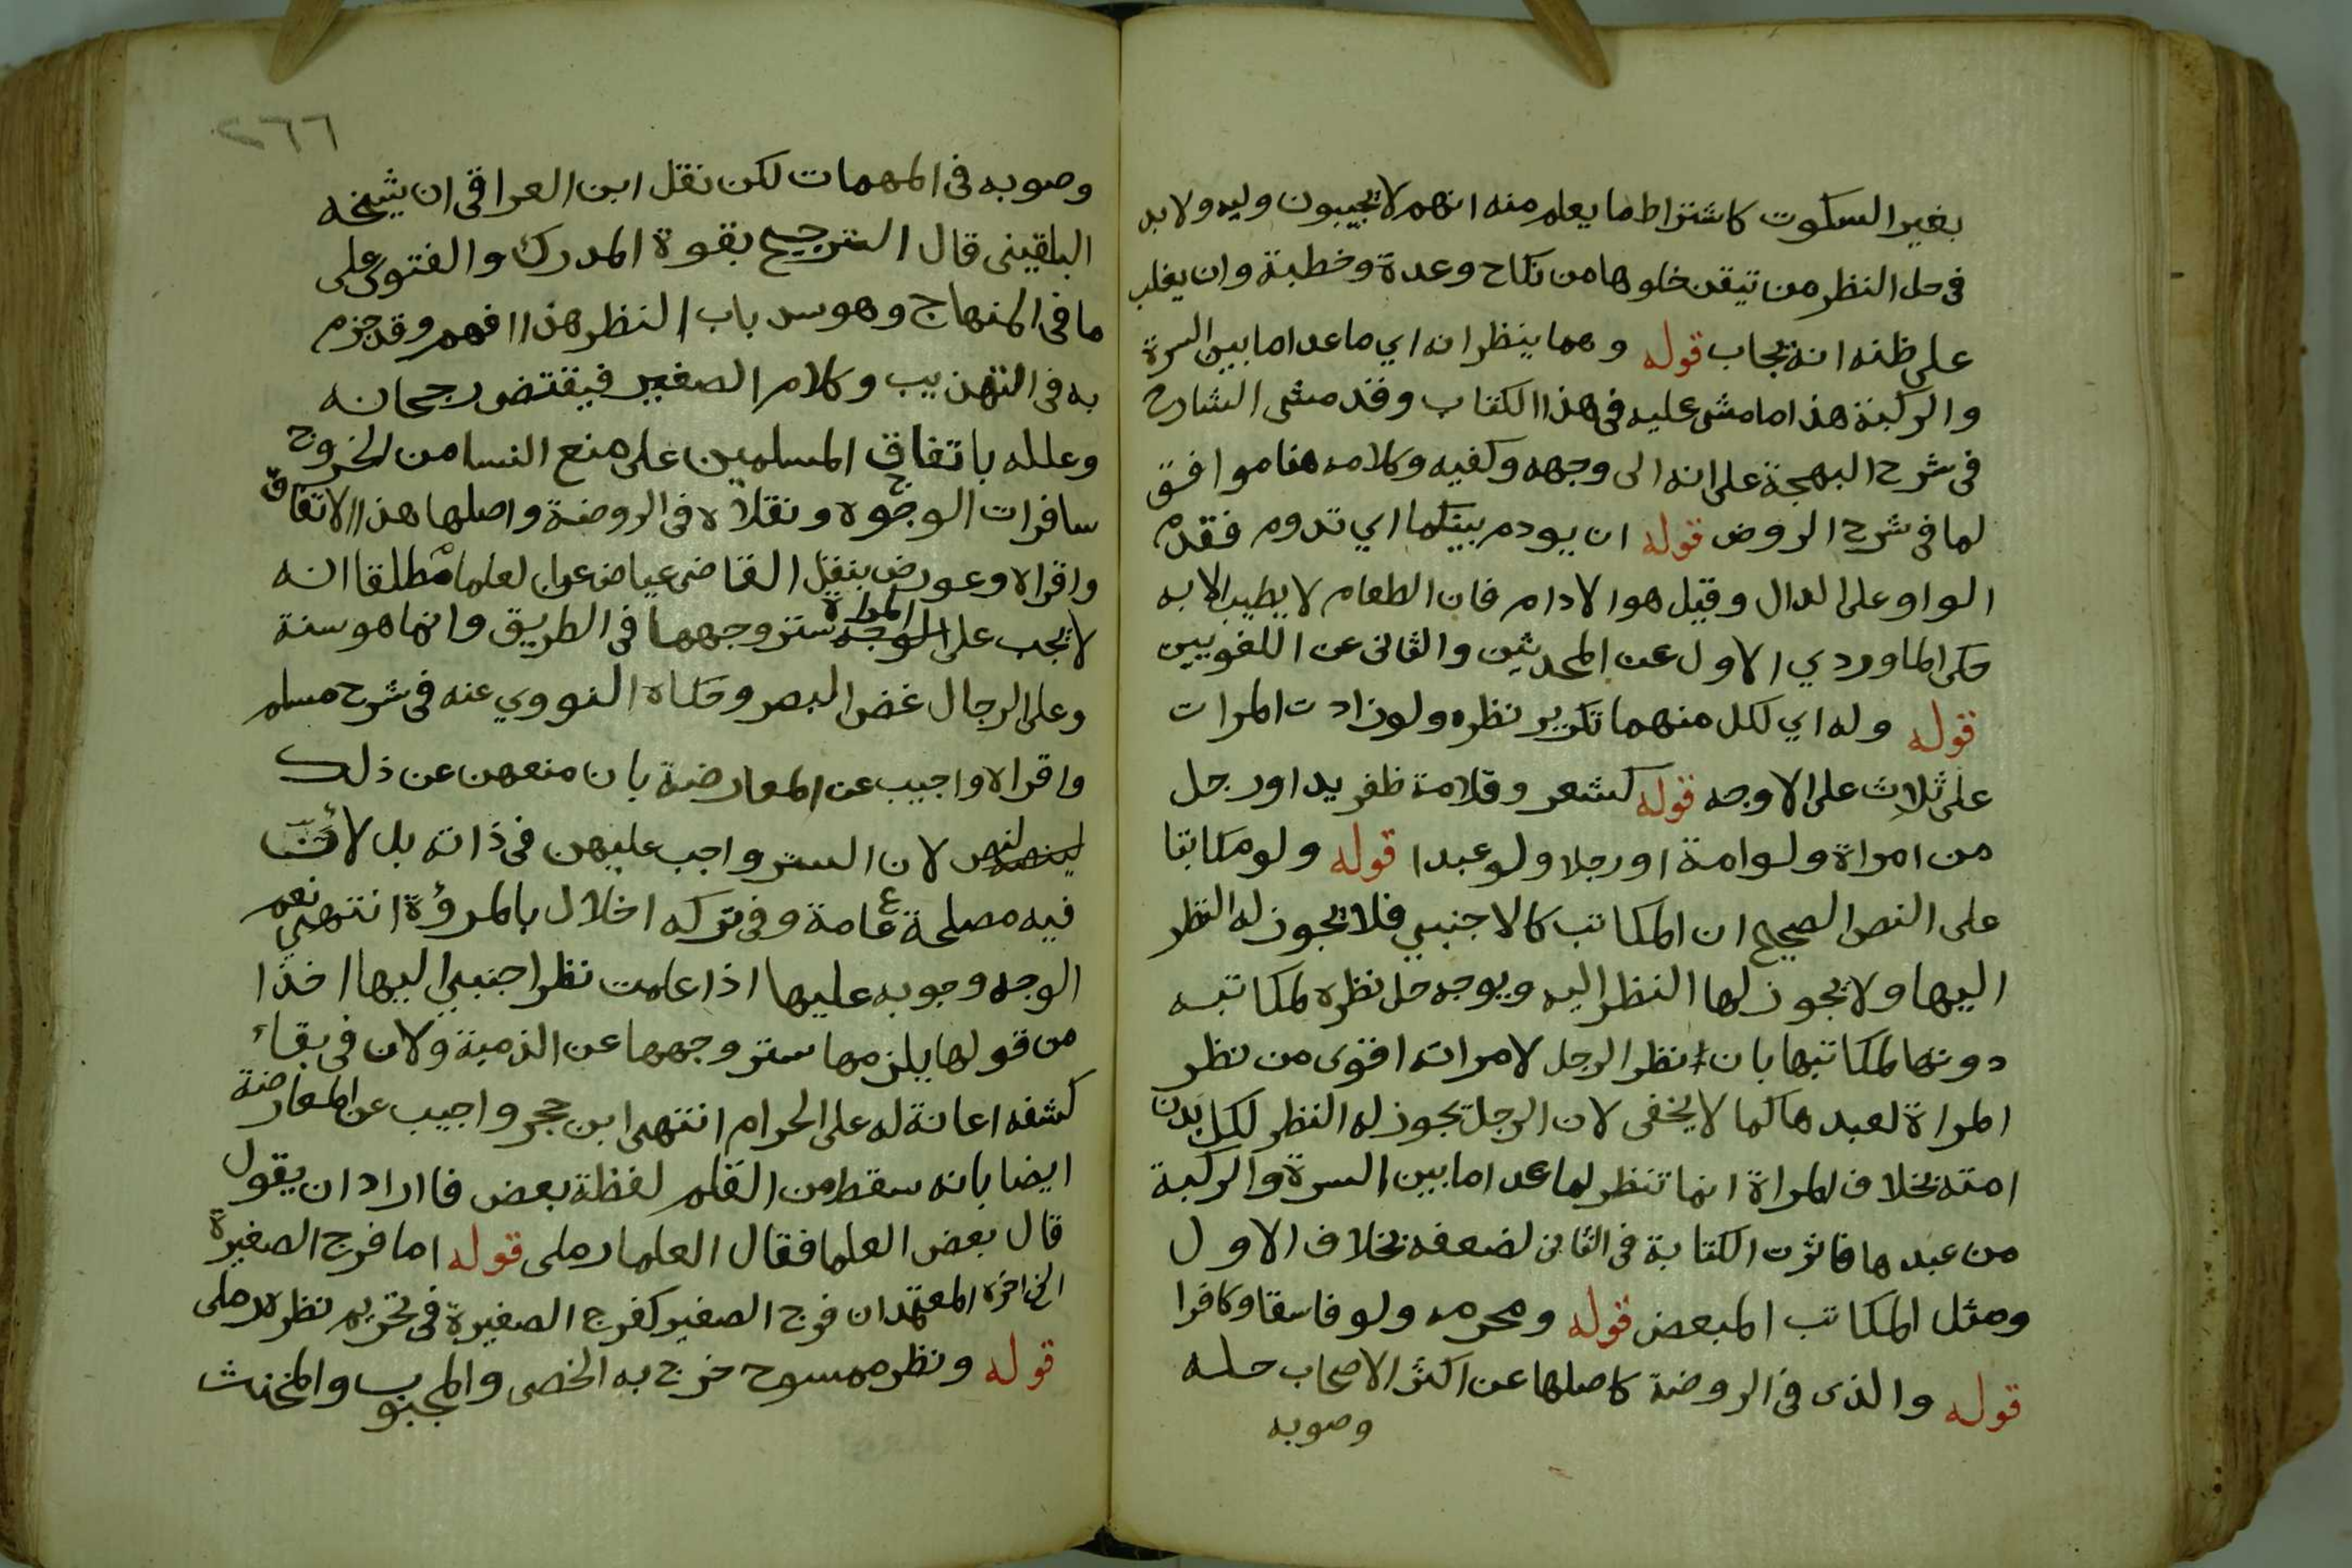 بغير السكوت كاشتراط ما يعلم منه انهم لا يجيبون وليه ولا بد
فى حل النظر من تيقن خلوها من نكاح وعدة وخطبة وان يغلب
على ظنه انه يجاب قوله وهما ينظران اي ما عدا ما بين السرة
والركبة هذا ما مشى عليه فى هذا الكتاب وقد مشى الشارح
فى شرح البهجة على انه الى وجهه وكفيه وكلامه هنا موافق
لما فى شرح الروض قوله ان يودم بينكما اي تدوم فقدم
الواو على الدال وقيل هو الادام فان الطعام لا يطيب الا به
حكى الماوردي الاول عن المحدثين والثانى عن اللغويين
قوله وله اي لكل منهما تكرير نظره ولو زادت المرات
على ثلاث على الاوجه قوله كشعر وقلامة ظفر يد او رجل
من امراة ولو امة او رجلا ولو عبدا قوله ولو مكاتبا
على النص الصحيح ان المكاتب كالاجنبي فلا يجوز له النظر
اليها ولا يجوز لها النظر اليه ويوجه حل نظره لمكاتبه
دونها لمكاتبها بان نظر الرجل لامراته اقوى من نظر
المراة لعبدها كما لا يخفى لان الرجل يجوز له النظر لكل بدن
امته بخلاف المراة انما تنظر لما عدا ما بين السرة والركبة
من عبدها فاثرت الكتابة فى الثانى لضعفه بخلاف الاول
ومثل المكاتب المبعض قوله ومحرمه ولو فاسقا وكافرا
قوله والذى فى الروضة كاصلها عن اكثر الاصحاب حله
وصوبه
٢٦٦
وصوبه فى المهمات لكن نقل ابن العراقى ان شيخه
البلقينى قال الترجيح بقوة المدرك والفتوى على
ما فى المنهاج وهو سد باب النظر هذا افهم وقد جزم
به فى التهذيب وكلام الصغير فيقتض رجحانه
وعلله باتفاق المسلمين على منع النسا من الخروج
سافرات الوجوه ونقلاه فى الروضة واصلها هذا الاتفاق
واقراه وعورض بنقل القاضى عياض عن العلما مطلقا انه
لا يجب على المراة ستر وجهها فى الطريق وانما هو سنة
وعلى الرجال غض البصر وحكاه النووي عنه فى شرح مسلم
واقراه واجيب عن المعارضة بان منعهن عن ذلك
ليس لان الستر واجب عليهن فى ذاته بل لأن
فيه مصلحة عامة وفى تركه اخلال بالمروؤة انتهى نعم
الوجه وجوبه عليها اذا علمت نظر اجنبي اليها اخذا
من قولها يلزمها ستر وجهها عن الذمية ولان فى بقاء
كشفه اعانة له على الحرام انتهى ابن حجر واجيب عن المعارضة
ايضا بانه سقط من القلم لفظة بعض فا اراد ان يقول
قال بعض العلما فقال العلما رملى قوله اما فرج الصغيرة
الخ اخره المعتمد ان فرج الصغير كفرج الصغيرة فى تحريم نظره رملى
قوله ونظر ممسوح خرج به الخصى والمجبوب والمخنث